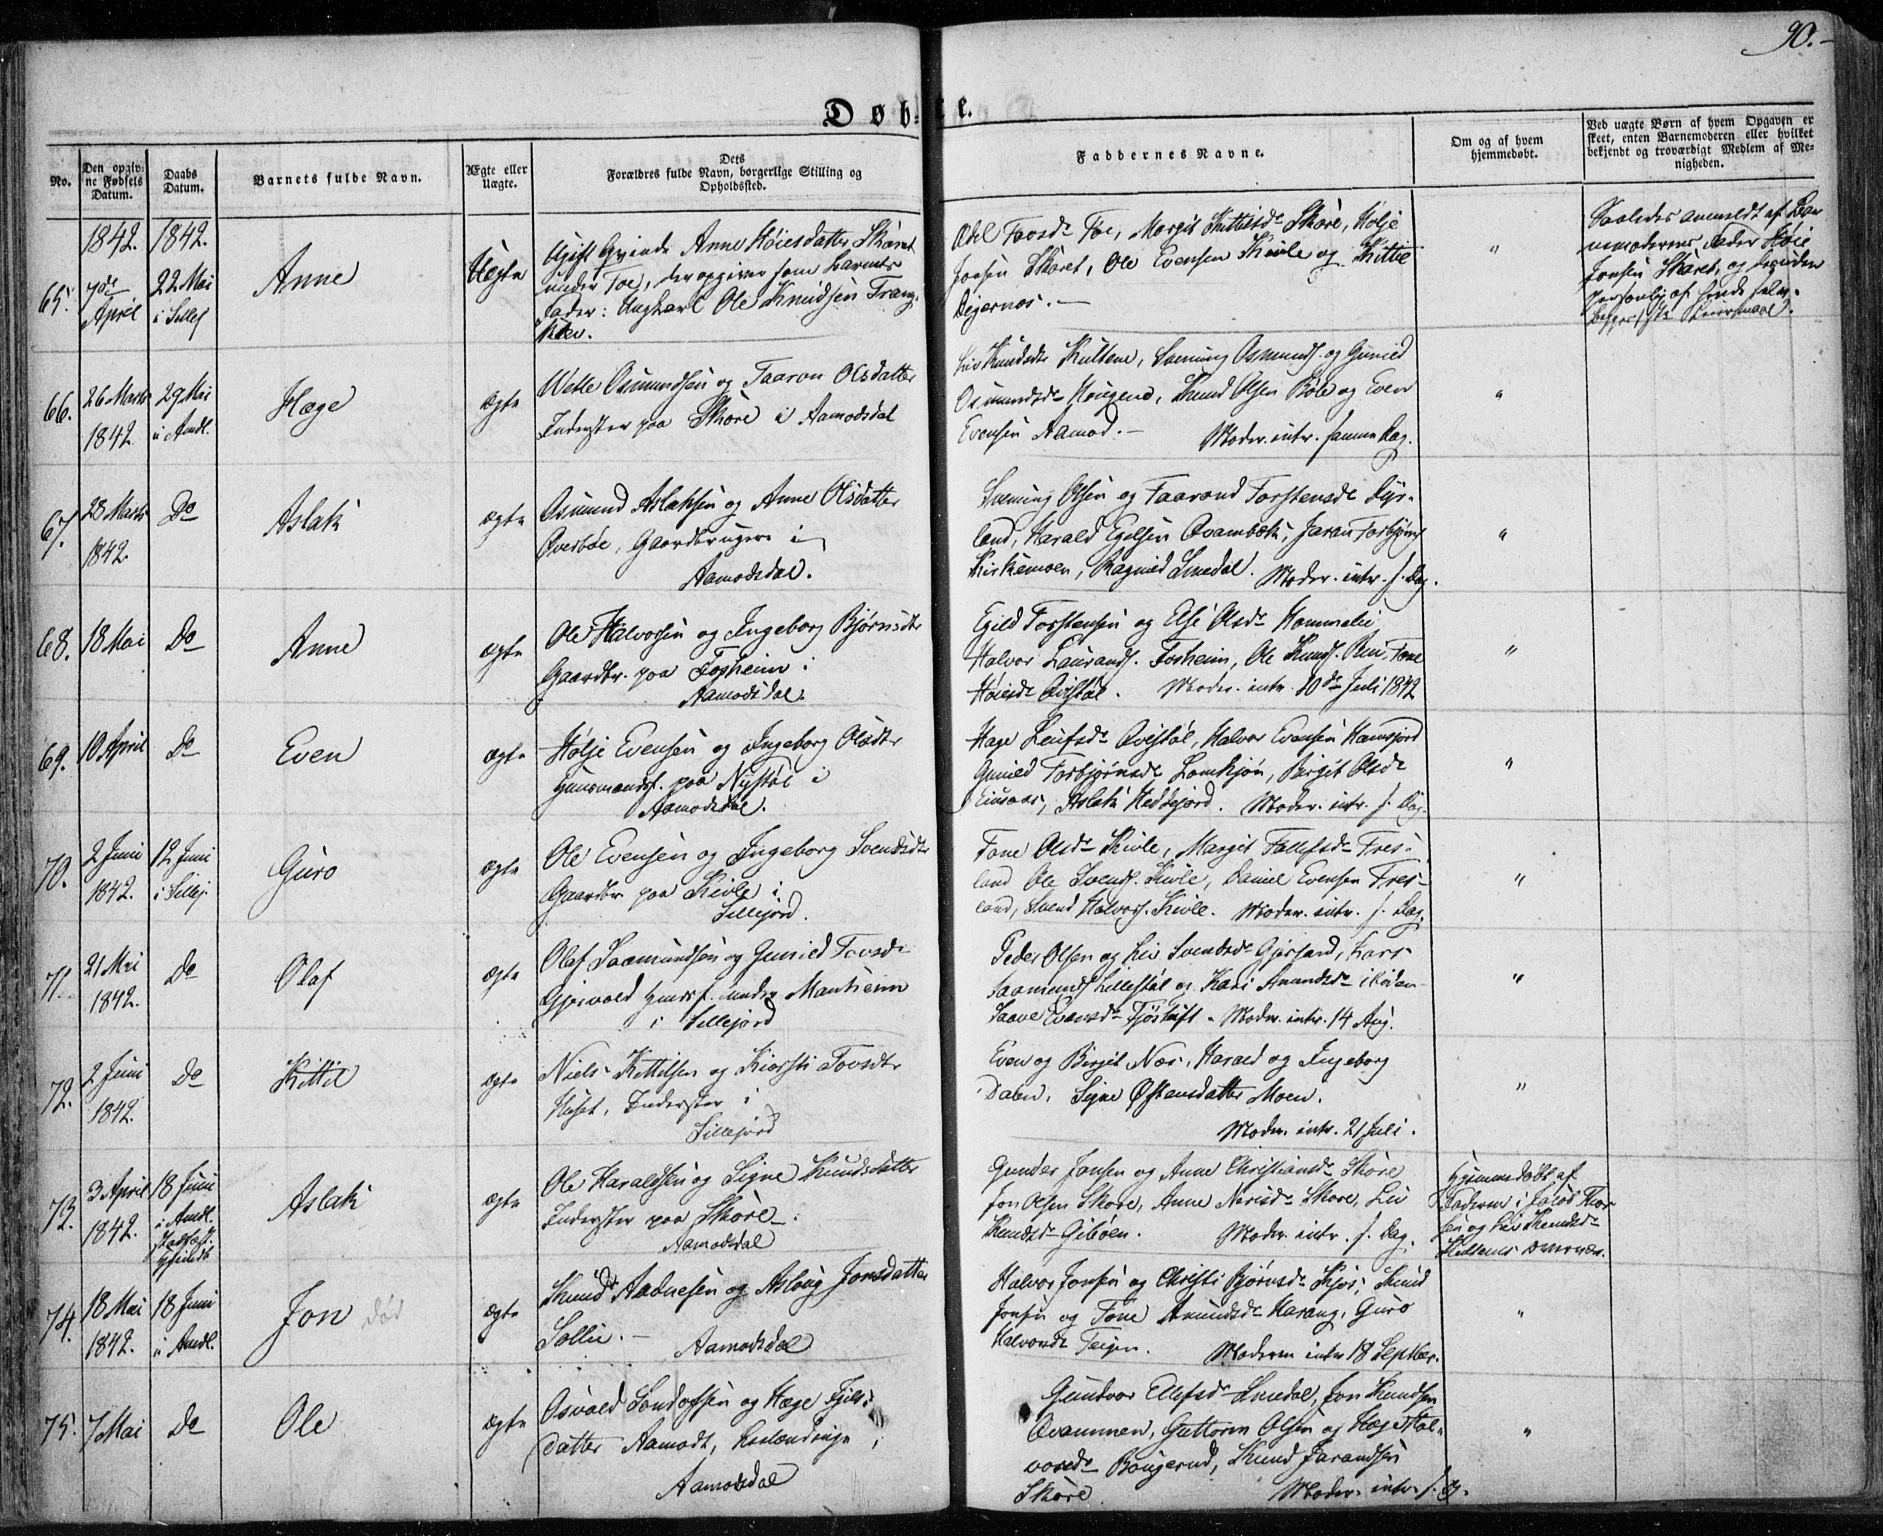 90.
Døbte.
No.
Den opgiv-
ne Fødsels
Datum.
Daabs
Datum.
Barnets fulde Navn.
Ægte eller
Uægte.
Dets
Forældres fulde Navn, borgerlige Stilling og
Opholdssted.
Faddernes Navne.
Om og af hvem
hjemmedøbt.
Ved uægte Børn af hvem Opgaven er
skeet, enten Barnemoderen eller hvilket
bekjendt og troværdigt Medlem af Me-
nigheden.
1842. 1842.
65. 7de April
22 Mai i Sillej
Anne
Uægte
Ugift Qvinde Anne Høiesdatter Skaret
under Toe, der opgiver som barnets
Fader: Ungkarl Ole Knudsen
Toe, Margit Kittilsd. Skore, Holje
Jonsen Skaret, Ole Evensen Kivle og Kittil
Dejernæs.
"
Saaledes anmeldt af Bar-
nemoderens Fader Høie
Jonsen Skaret, og desuden
66. 26 Marts 1842
29 Mai i Amdl.
Hæge
ægte
Osmundsen og Taaron Olsdatter
Inderster paa Skore i Aamodsdal
Liv Knudsdtr Kultene, Sveinung Osmunds. og Gunild
Osmundsdr Haugene, Knud Olsen Bøle og Even
Evensen Aamod. Moder. intr. samme Dag.
"
67. 28 Marts 1842.
Do
Aslak
ægte
Osmund Aslaksen og Anne Olsdatter
Øverbøe, Gaardbrugere i
Aamodsdal.
Sveinung Olsen og Taarond Torstensdr Dyr-
land, Harald Egelsen Qvambæk, Jaran Torbjørns
Kirkemoen, Ragnild Smedal. Moder. intr. s. Dag.
"
68. 18 Mai
Do
Anne
ægte
Ole Halvorsen og Ingeborg Bjørnsdtr
Gaardbr. paa Forsheim i
Aamodsdal.
Egild Torstensen og Else Olsdr Hommelie,
Halvor Laurands. Forsheim, Ole Knuds. Rui, Tone
Høiesdr Qvistøl. Moder. intr. 10de Juli 1842
"
69. 10 April
Do
Even
ægte
Holje Evensen og Ingeborg Olsdtr
Huusmandsf. paa Nystøl i
Aamodsdal.
Hæge Leifsdr Qvistøl, Halvor Evensen
Gunild Torbjørnsdr Lomtjøn, Birgit Olsdr
Aslak Heddejord. Moder. intr. s. Dag.
"
70. 2 Juni 1842.
12 Juni i Sillej.
Guro
ægte
Ole Evensen og Ingeborg Svendsdtr
Gaardbr. paa Kivle i
Sillejord.
Tone Olsdr Kivle, Margit Tollefsdr Tres-
land, Ole Svends. Kivle, Daniel Evensen Tres-
land, Svend Halvors. Kivle. Moder. intr. s. Dag.
"
71. 21 Mai 1842.
Do
Olaf
ægte
Olaf Saamundsen og Gunild Tovsdr
Gjervold Huusf. under Mantheim
i Sillejord
Peder Olsen og Liv Svendsdr Gjersand, Lars
Saamunds. Lillestøl og Kari Amundsdr
Saave Evensdr. Moder. intr. 14 Aug.
"
72. 2 Juni 1842.
Do
Kittil
ægte
Niels Kittilsen og Kiersti Tovsdtr
Huset, Inderster i
Sillejord
Even og Birgit Næs, Harald og Ingeborg
Dalen, Signe Østensdatter Moen.
Moder. intr. 21 Juli.
"
73. 3 April 1842.
18 Juni i Amdl.
Aslak
ægte
Ole Haraldsen og Signe Knudsdatter
Inderster paa Skore i
Aamodsdal
Gunder Jonsen og Anne Christiansdr Skore
Jon Olsen Skore, Anne Nerisdr Skore, Liv
Knudsdr Gibøen. Moder. intr. s. Dag.
Hjemmedøbt af
Faderen i
og Liv Knudsdr
74. 18 Mai 1842.
18 Juni i Amdl.
Jon død
ægte
Knud Aadnesen og Aslaug Jonsdatter
Sollie. Aamodsdal
Halvor Jonsen og Christi Bjørnsdr Kjos, Knud
Jonsen og Tone Amundsdr Haraug, Guro
Halvorsdr Teigen. Moderen intr 18 Septber.
"
75. 7 Mai
Do
Ole
ægte
Osvald Sondofsen og Hæge
datter Aamodt, i
Aamodsdal
Gundvor Ellefsdr Smedal, Jon Knudsen
Qvammen, Guttorm Olsen og Hæge Hal-
vorsdr Bougerud, Knud Jarandsen
Skore. Moder. intr. s. Dg.
"